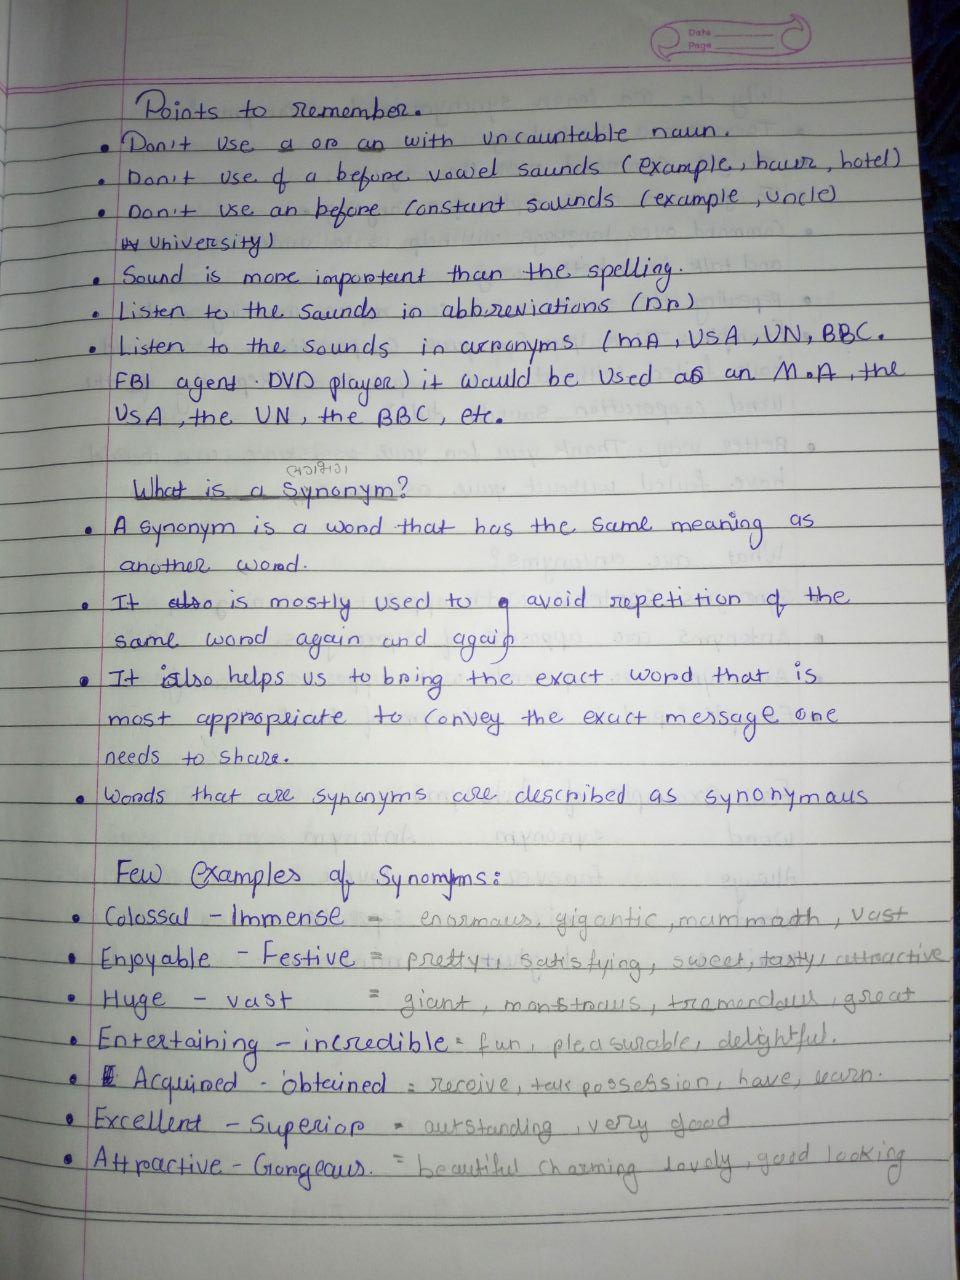 Date
Page
Points to remember.
• Don't use a or an with uncauntable naun.
• Don't use of a before vowel saunds (example, hauer, hotel)
• Don't use an before constant saunds (example, uncle)
University)
• Sound is more importent than the spelling.
• Listen to the saunds in abbreviations (Dr)
• Listen to the sounds in acronyms (MA, USA, UN, BBC.
FBI agent. DVD player) it would be used as an M.A, the
USA, the UN, the BBC, etc.
What is a Synonym?
• A synonym is a word that has the same meaning as
another word.
• It also is mostly used to avoid repetition of the
same word again and again
• It also helps us to bring the exact word that is
most appropriate to convey the exact message one
needs to share.
• Words that are synonyms are described as synonymaus
Few examples of Synonyms:
• Colossal - Immense = enarmaus, gigantic, mammath, vast
• Enjoyable - Festive = pretty, satisfying, sweet, tasty, attractive
• Huge - vast = giant, monstraus, tremendaus, great
• Entertaining - incredible = fun, pleasurable, delightful.
• Acquired - obtained = receive, take possession, have, earn.
• Excellent - Superior = autstanding, very good
• Attractive - Gorgeaus. = beautiful charming lovely, good looking